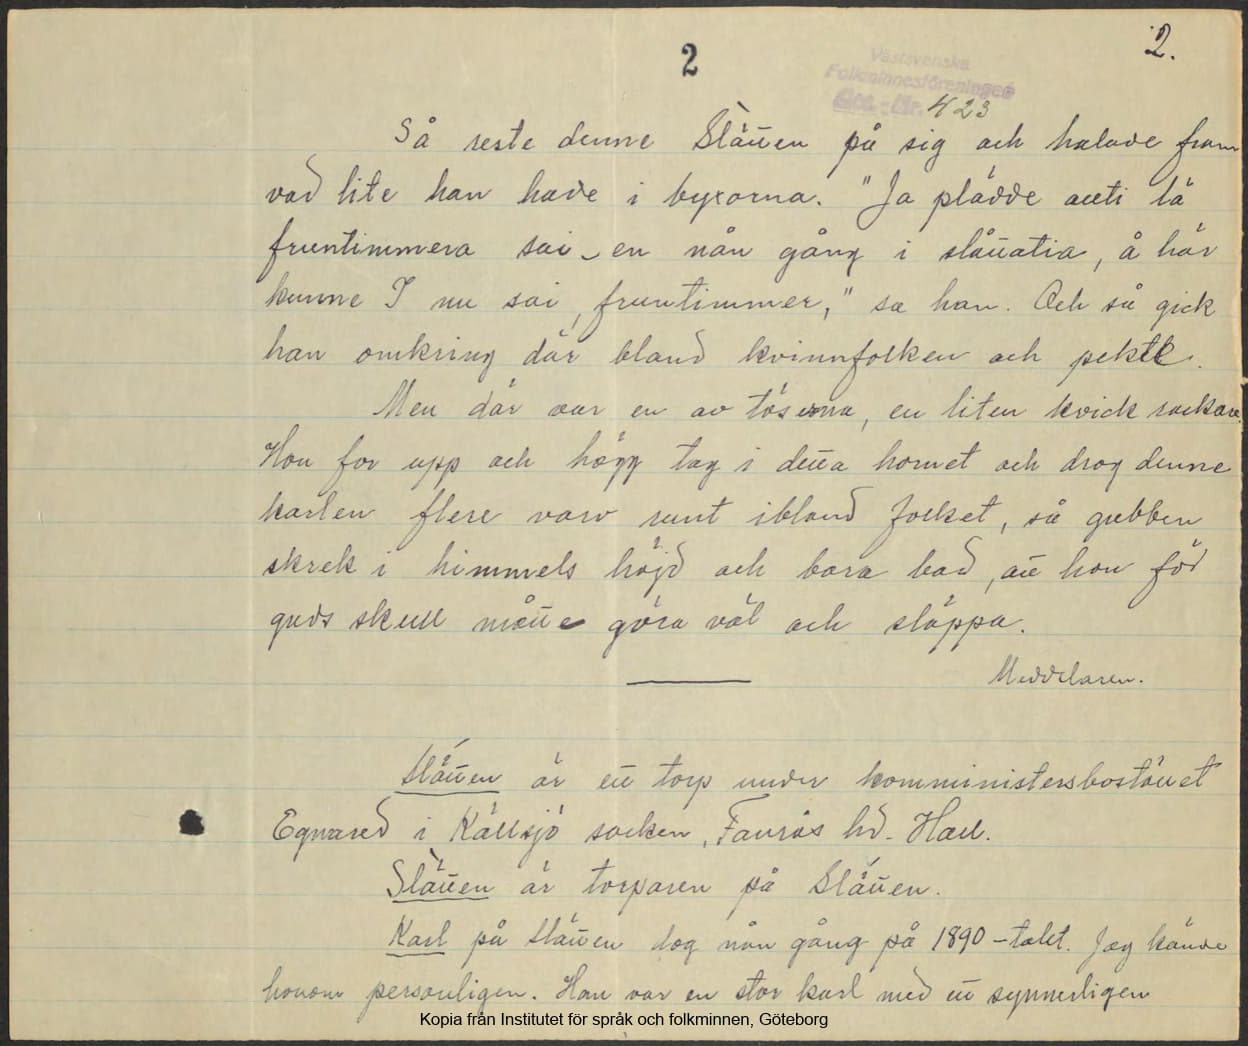 2
2.
Västsvenska
Folkminnesföreningen
Acc.-Nr. 423
Så reste denne Slätten på sig och halade fram
vad lite han hade i byxorna. "Ja plädde atti lä
fruntimmera sai en nån gång i slåttatia, å här
kunne I nu sai, fruntimmer," sa han. Och så gick
han omkring där bland kvinnfolken och pekte.
Men där var en av töserna, en liten kvick rackare.
Hon for upp och högg tag i detta hornet och drog denne
karlen flere varv runt ibland folket, så gubben
skrek i himmels höjd och bara bad, att hon för
guds skull måtte göra väl och släppa.
Meddelaren.
Slätten är ett torp under komministersbostället
Egnared i Källsjö socken, Faurås hd. Hall.
Slätten är torparen på Slätten.
Karl på Slätten dog nån gång på 1890-talet. Jag kände
honom personligen. Han var en stor karl med ett synnerligen
Kopia från Institutet för språk och folkminnen, Göteborg